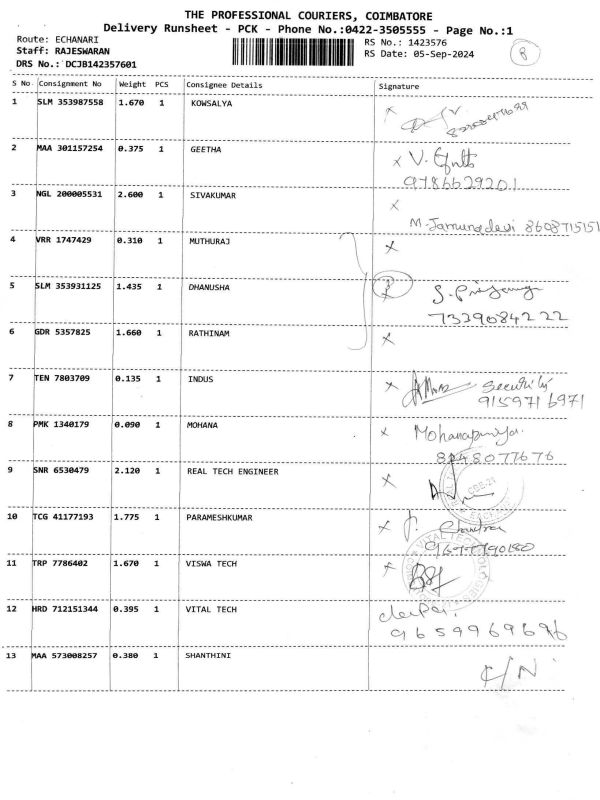 THE PROFESSIONAL COURIERS, COIMBATORE
Delivery Runsheet - PCK - Phone No.:0422-3505555 - Page No.:1
Route: ECHANARI RS No.: 1423576
Staff: RAJESWARAN RS Date: 05-Sep-2024 8
DRS No.: DCJB142357601
S No Consignment No Weight PCS Consignee Details Signature
1 SLM 353987558 1.670 1 KOWSALYA x
2 MAA 301157254 0.375 1 GEETHA x V.
9786629201
3 NGL 200005531 2.600 1 SIVAKUMAR x
M. Jamunadevi 8608715151
4 VRR 1747429 0.310 1 MUTHURAJ x
5 SLM 353931125 1.435 1 DHANUSHA x S.
7339084222
6 GDR 5357825 1.660 1 RATHINAM x
7 TEN 7803709 0.135 1 INDUS x Security
9159716971
8 PMK 1340179 0.090 1 MOHANA x Mohanapriya.
8248077676
9 SNR 6530479 2.120 1 REAL TECH ENGINEER x
10 TCG 41177193 1.775 1 PARAMESHKUMAR x
11 TRP 7786402 1.670 1 VISWA TECH x
12 HRD 712151344 0.395 1 VITAL TECH
9659969696
13 MAA 573008257 0.380 1 SHANTHINI
C/N